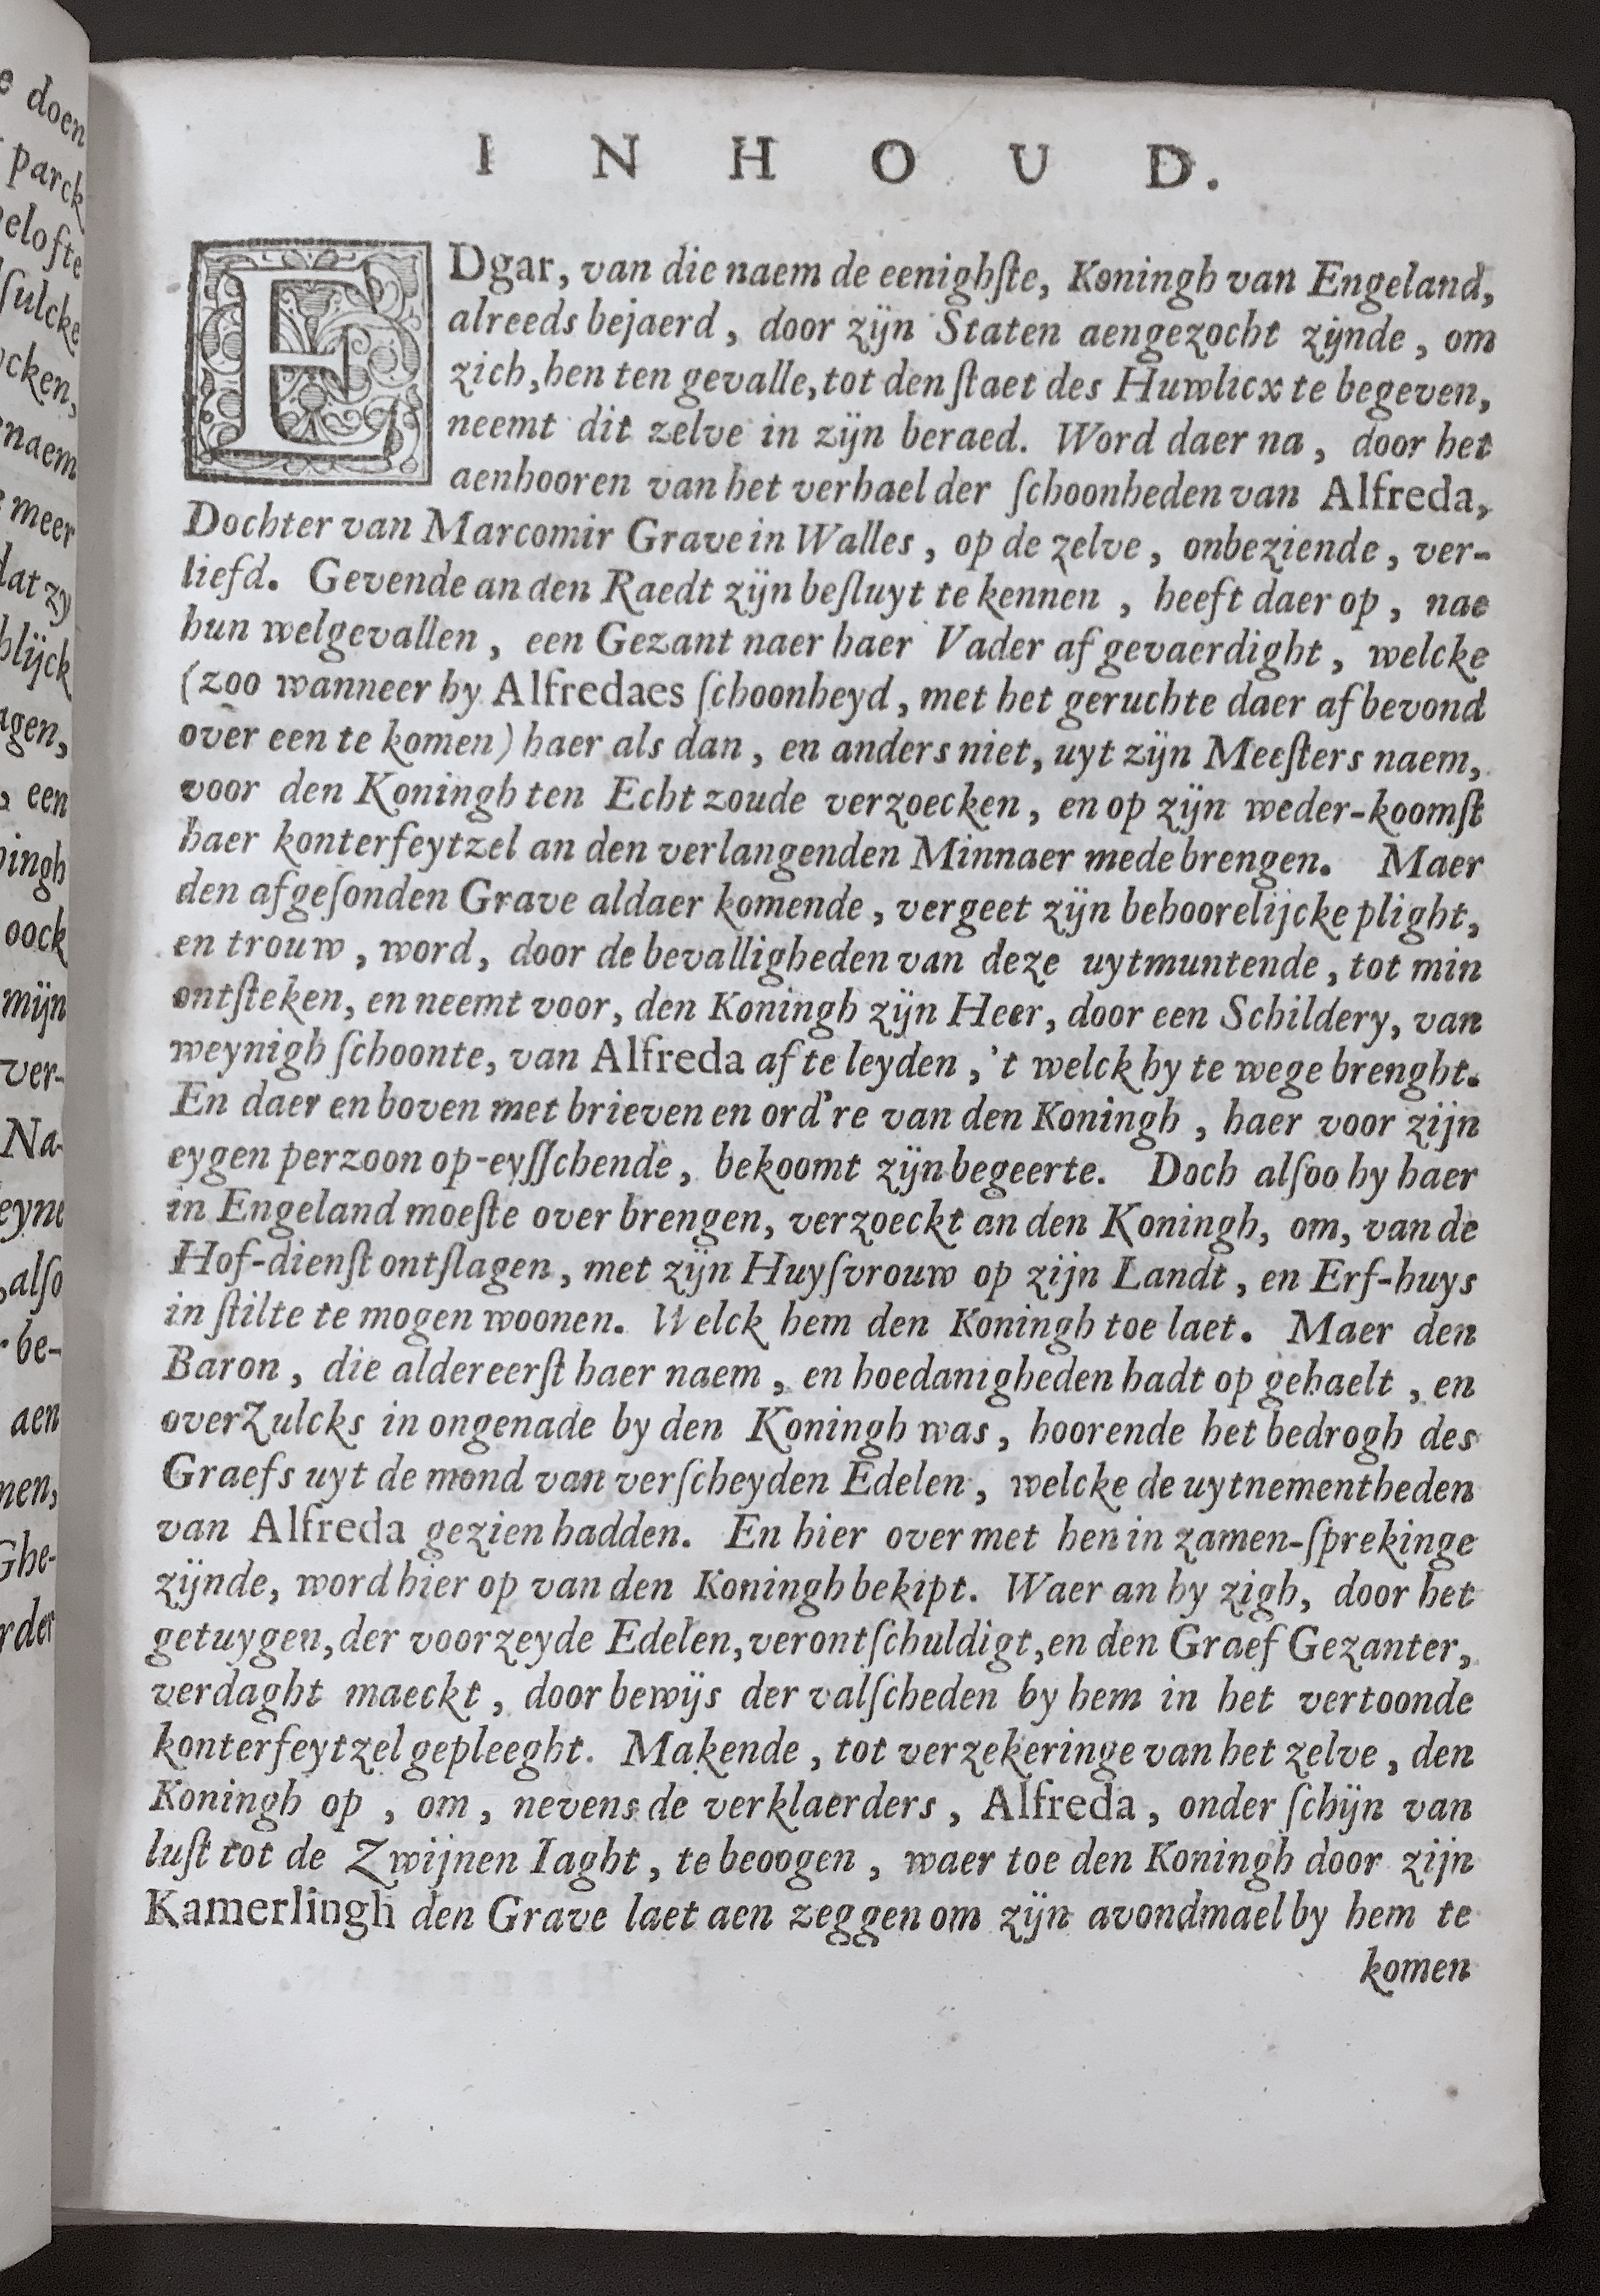 I N H O U D.
EDgar, van die naem de eenighſte, Koningh van Engeland,
alreeds bejaerd, door zijn Staten aengezocht zijnde, om
zich, hen ten gevalle, tot den ſtaet des Huwlicx te begeven,
neemt dit zelve in zijn beraed. Word daer na, door het
aenhooren van het verhael der ſchoonheden van Alfreda,
Dochter van Marcomir Grave in Walles, op de zelve, onbeziende, ver-
liefd. Gevende an den Raedt zijn beſluyt te kennen, heeft daer op, nae
hun welgevallen, een Gezant naer haer Vader af gevaerdight, welcke
(zoo wanneer hy Alfredaes ſchoonheyd, met het geruchte daer af bevond
over een te komen) haer als dan, en anders niet, uyt zijn Meeſters naem,
voor den Koningh ten Echt zoude verzoecken, en op zijn weder-koomſt
haer konterfeytzel an den verlangenden Minnaer mede brengen. Maer
den afgeſonden Grave aldaer komende, vergeet zijn behoorelijcke plight,
en trouw, word, door de bevalligheden van deze uytmuntende, tot min
ontſteken, en neemt voor, den Koningh zijn Heer, door een Schildery, van
weynigh ſchoonte, van Alfreda af te leyden, 't welck hy te wege brenght.
En daer en boven met brieven en ord're van den Koningh, haer voor zijn
eygen perzoon op-eyſſchende, bekoomt zijn begeerte. Doch alſoo hy haer
in Engeland moeſte over brengen, verzoeckt an den Koningh, om, van de
Hof-dienſt ontſlagen, met zijn Huyſvrouw op zijn Landt, en Erf-huys
in ſtilte te mogen woonen. Welck hem den Koningh toe laet. Maer den
Baron, die aldereerſt haer naem, en hoedanigheden hadt op gehaelt, en
overZulcks in ongenade by den Koningh was, hoorende het bedrogh des
Graefs uyt de mond van verſcheyden Edelen, welcke de uytnementheden
van Alfreda gezien hadden. En hier over met hen in zamen-ſprekinge
zijnde, word hier op van den Koningh bekipt. Waer an hy zigh, door het
getuygen, der voorzeyde Edelen, verontſchuldigt, en den Graef Gezanter,
verdaght maeckt, door bewijs der valſcheden by hem in het vertoonde
konterfeytzel gepleeght. Makende, tot verzekeringe van het zelve, den
Koningh op, om, nevens de verklaerders, Alfreda, onder ſchijn van
luſt tot de Zwijnen Iaght, te beoogen, waer toe den Koningh door zijn
Kamerlingh den Grave laet aen zeggen om zijn avondmael by hem te
komen
e doen
parck
elofte
ſulcke
cken,
naem
meer
dat zy
lijck
agen,
een
ingh
oock
mijn
ver-
Na-
alſo
be-
aen
nen,
Ghe-
rder